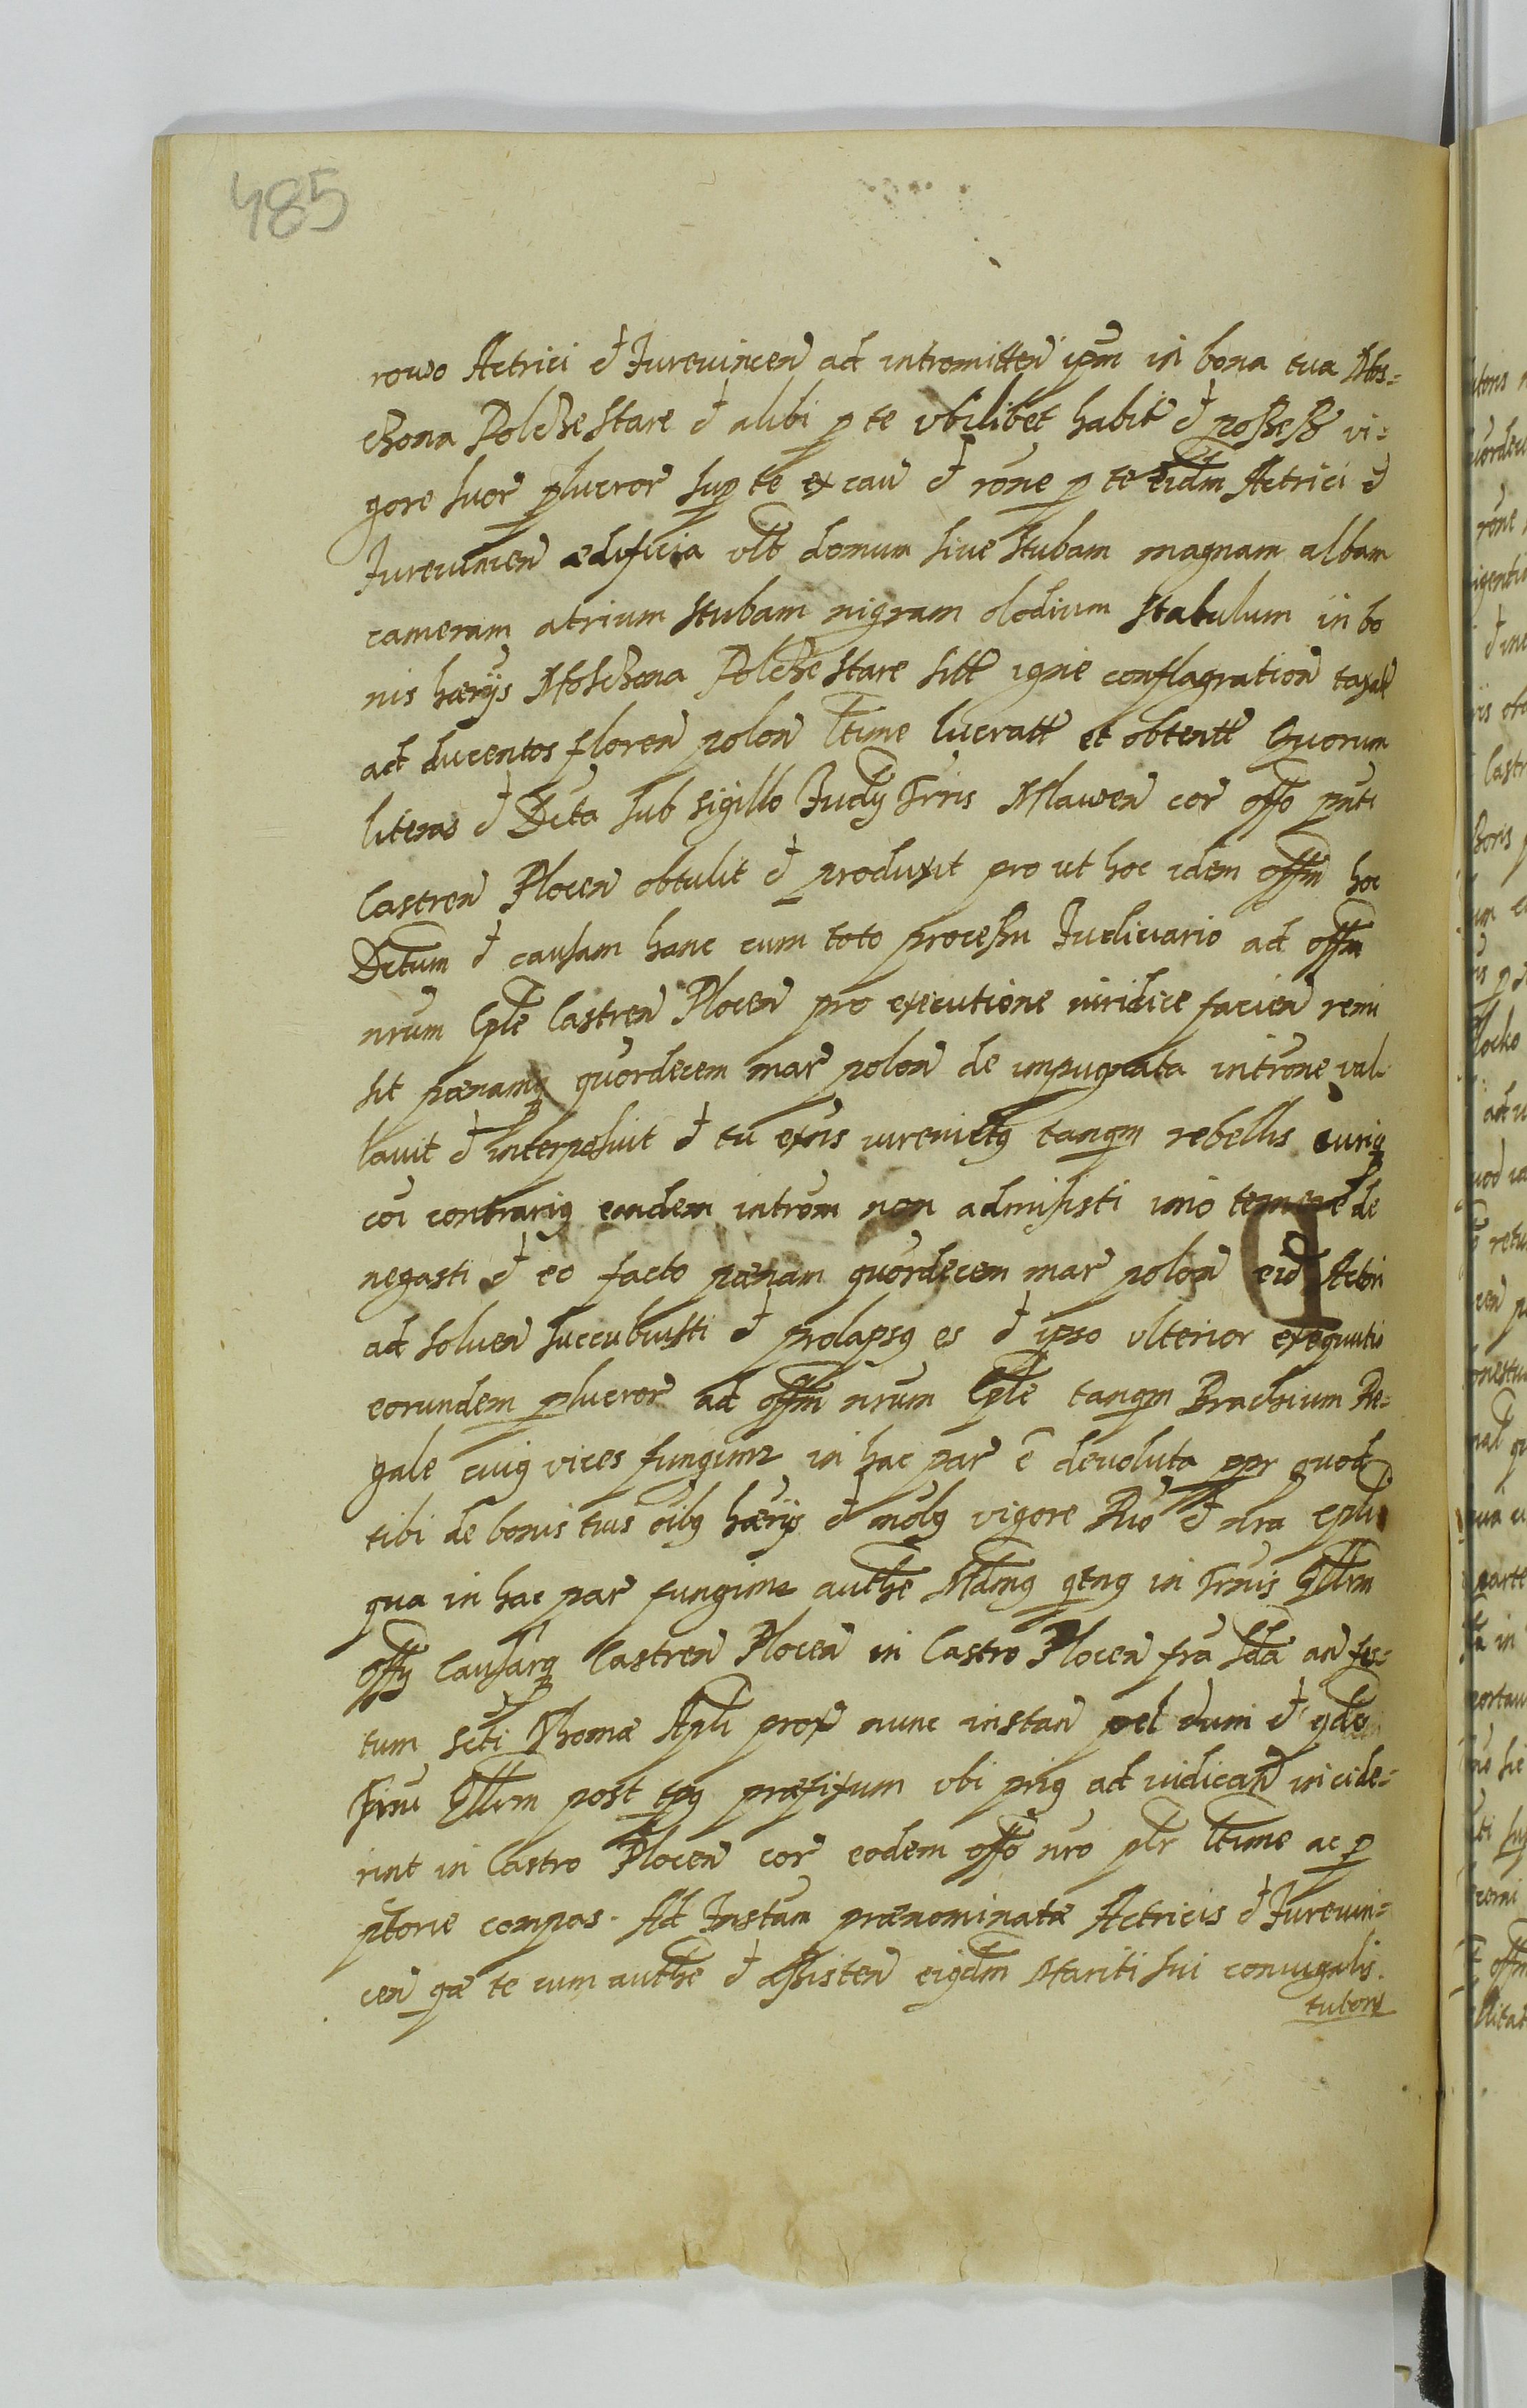 485
rowo Actrici et Jurevincen ad intromitten ipm in bona tua Mos=
chona Polche stare et alibi p te ubilibet habit et possess vi=
gore suor plucror sup te ex cau et rone p te eidm Actrici et
Jurevincen ædificia vlt domum sive stubam magnam albam
cameram atrium stubam nigram olodium stabulum in bo
nis hærijs Moschona Polche stare sitt igne conflagration taxat
ad ducentos floren polon ltime lucratt et obtentt Quorum
literas et Dcta sub sigillo Judij Trris Mlawen cor offo pnti
Castren Plocen obtulit et produxit pro ut hoc idem offm hoc
Dctum et causam hanc cum toto processu Judiciario ad offm
nrum Cple Castren Plocen pro executione iuridice facien remi
sit pænamq quordecem mar polon de impugnata introne val
lavit et interposuit et tu exns iurevictq tanqm rebellis iuriq
coi contrariq eandem introm non admisisti imo temere de
negasti et eo facto pænam quordecem mar polon eid Actori
ad solven succubuisti et prolapsq es et ipso ulterior exequutio
eorundem plucror ad offm nrum Cple tanqm Brachium Re=
gale cuiq vices fungimr in hac par e devoluta ppr quod
tibi de bonis tuis oibq hærijs et mobq vigore Rio et nra cplis
qua in hac par fungimr authe Mdmq qtnq in Trnis Qllrm
offij Causarq Castren Plocen in Castro Plocen fra sda an fes=
tum scti Thomæ Apli prox nunc instan vel dum et qdo
Trni Qllrm post tpq præfixum ubi priq ad iudicand incide=
rint in Castro Plocen cor eodem offo nro plr ltime ac p
ptorie compas. Ad Instan prænominatæ Actricis et Jurevin=
cen qæ te cum authe et assisten eiqdm Mariti sui coniugalis
tutoris